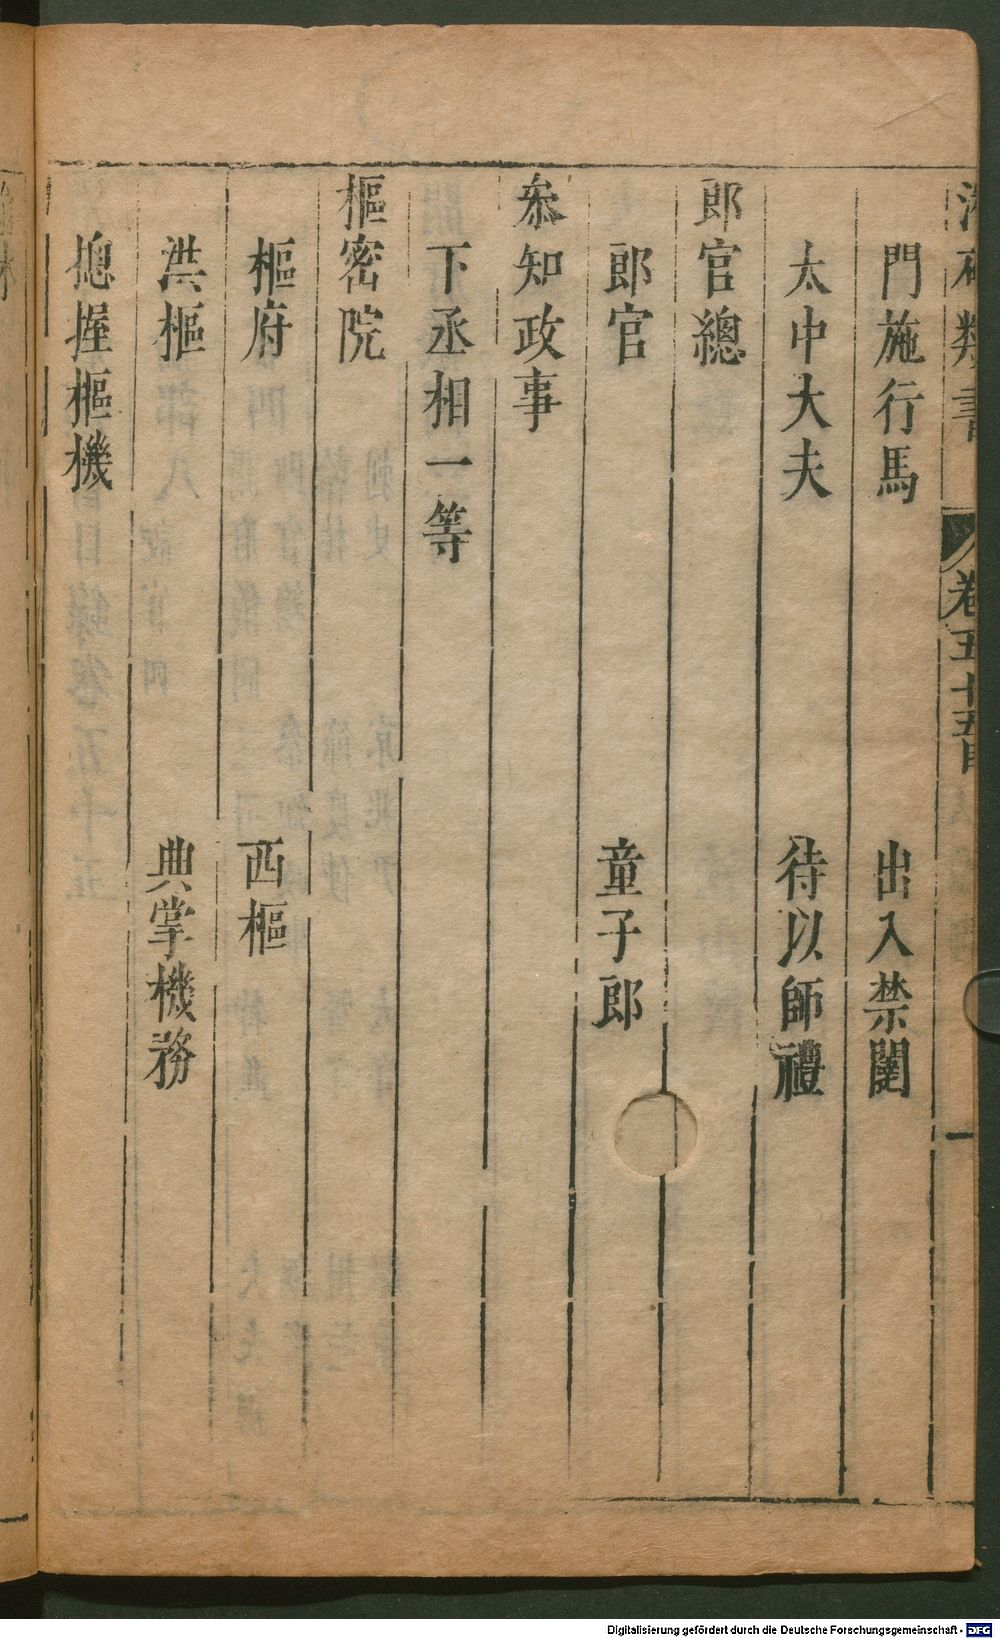 潛確類書 卷五十五目 一
門施行馬 出入禁闥
太中大夫 待以師禮
郎官總
郎官 童子郎
叅知政事
下丞相一等
樞密院
樞府 西樞
洪樞 典掌機務
摠握樞機
Digitalisierung gefördert durch die Deutsche Forschungsgemeinschaft - DFG